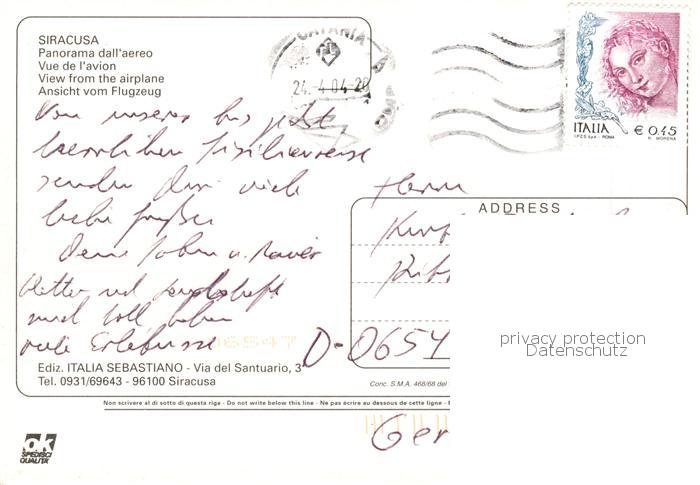 SIRACUSA
Panorama dall'aereo
Vue de l'avion
View from the airplane
Ansicht vom Flugzeug
CATANIA
24.-4.04-20
ITALIA € 0,45
I.P.Z.S. S.p.A. - ROMA R. MORENA
Von unserer bis jetzt
herrlichen Sizilienreise
senden Dir viele
liebe Grüße
Deine u.
Wetter und Landschaft
sind toll haben
viele Erlebnisse
06547
Ediz. ITALIA SEBASTIANO - Via del Santuario, 3
Tel. 0931/69643 - 96100 Siracusa
Herrn
ADDRESS
D-0654
privacy protection
Datenschutz
Conc. S.M.A. 468/68 del
Non scrivere al di sotto di questa riga - Do not write below this line - Ne pas écrire au dessous de cette ligne -
Ger
ok
SPEDISCI
QUALITÀ